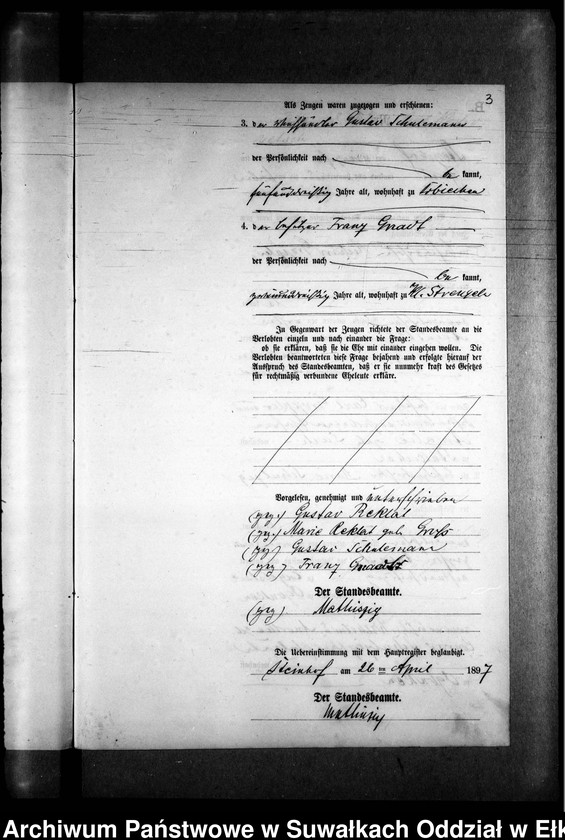 3
Als Zeugen waren zugezogen und erschienen:
3. der Gustav Schulemann
der Persönlichkeit nach
be kannt,
fünfunddreißig Jahre alt, wohnhaft zu
4. der Besitzer Franz Gnadt
der Persönlichkeit nach
be kannt,
Jahre alt, wohnhaft zu Kl. Strengeln
In Gegenwart der Zeugen richtete der Standesbeamte an die
Verlobten einzeln und nach einander die Frage:
ob sie erklären, daß sie die Ehe mit einander eingehen wollen. Die
Verlobten beantworteten diese Frage bejahend und erfolgte hierauf der
Ausspruch des Standesbeamten, daß er sie nunmehr kraft des Gesetzes
für rechtmäßig verbundene Eheleute erkläre.
Vorgelesen, genehmigt und unterschrieben
(gez.) Gustav Reklat
(gez.) Marie Reklat geb.
(gez.) Gustav Schulemann
(gez.) Franz Gnadt
Der Standesbeamte.
(gez.) Mathiszig
Die Uebereinstimmung mit dem Hauptregister beglaubigt.
Steinhof am 26ten April 1897
Der Standesbeamte.
Mathiszig
Archiwum Państwowe w Suwałkach Oddział w Ełk